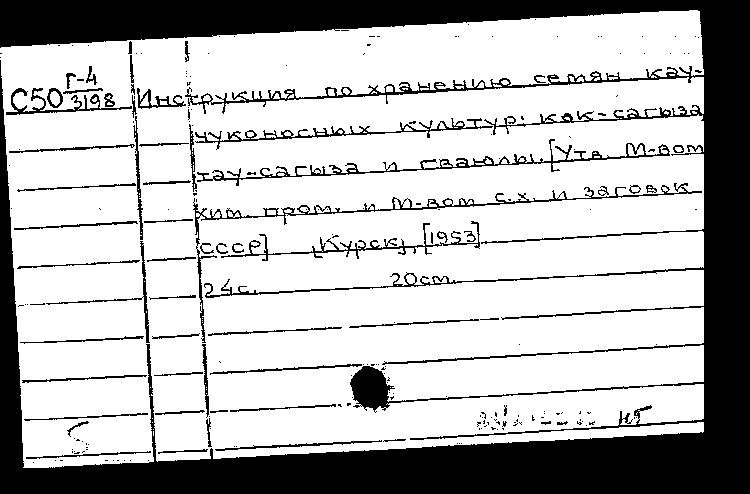 Г-4
С50 3198 Инструкция по хранению семян кау-
чуконосных культур: кок-сагыза,
тау-сагыза и гваюлы. [Утв. М-вом
хим. пром. и М-вом с.х. и заготовок
СССР] [Курск], [1953]
24с. 20см.
5
НБ